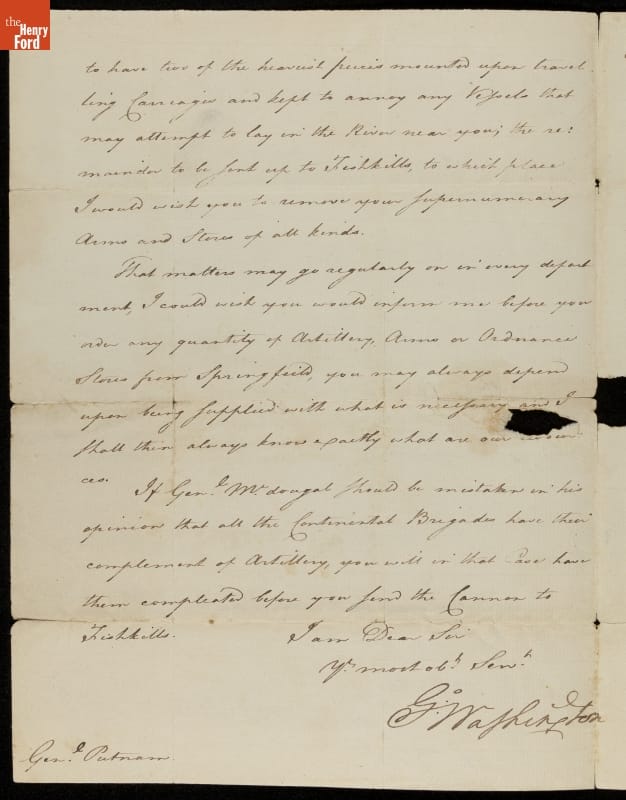 the
Henry
Ford
to have two of the heaviest pieces mounted upon travel
ling Carriages and kept to annoy any Vessels that
may attempt to lay in the River near you; the re:
mainder to be sent up to Fishkills, to which place
I would wish you to remove your supernumerary
Arms and Stores of all kinds.
That matters may go regularly on in every depart
ment, I could wish you would inform me before you
order any quantity of Artillery, Arms or Ordnance
Stores from Springfeild, you may always depend
upon being supplied with what is necessary and I
shall then always know exactly what are our
ces.
If Genl. Mcdougal should be mistaken in his
opinion that all the Continental Brigades have their
complement of Artillery, you will in that Case have
them compleated before you send the Cannon to
Fishkills. I am Dear Sir
Yr. most obt. Servt.
Go. Washington
Genl. Putnam.